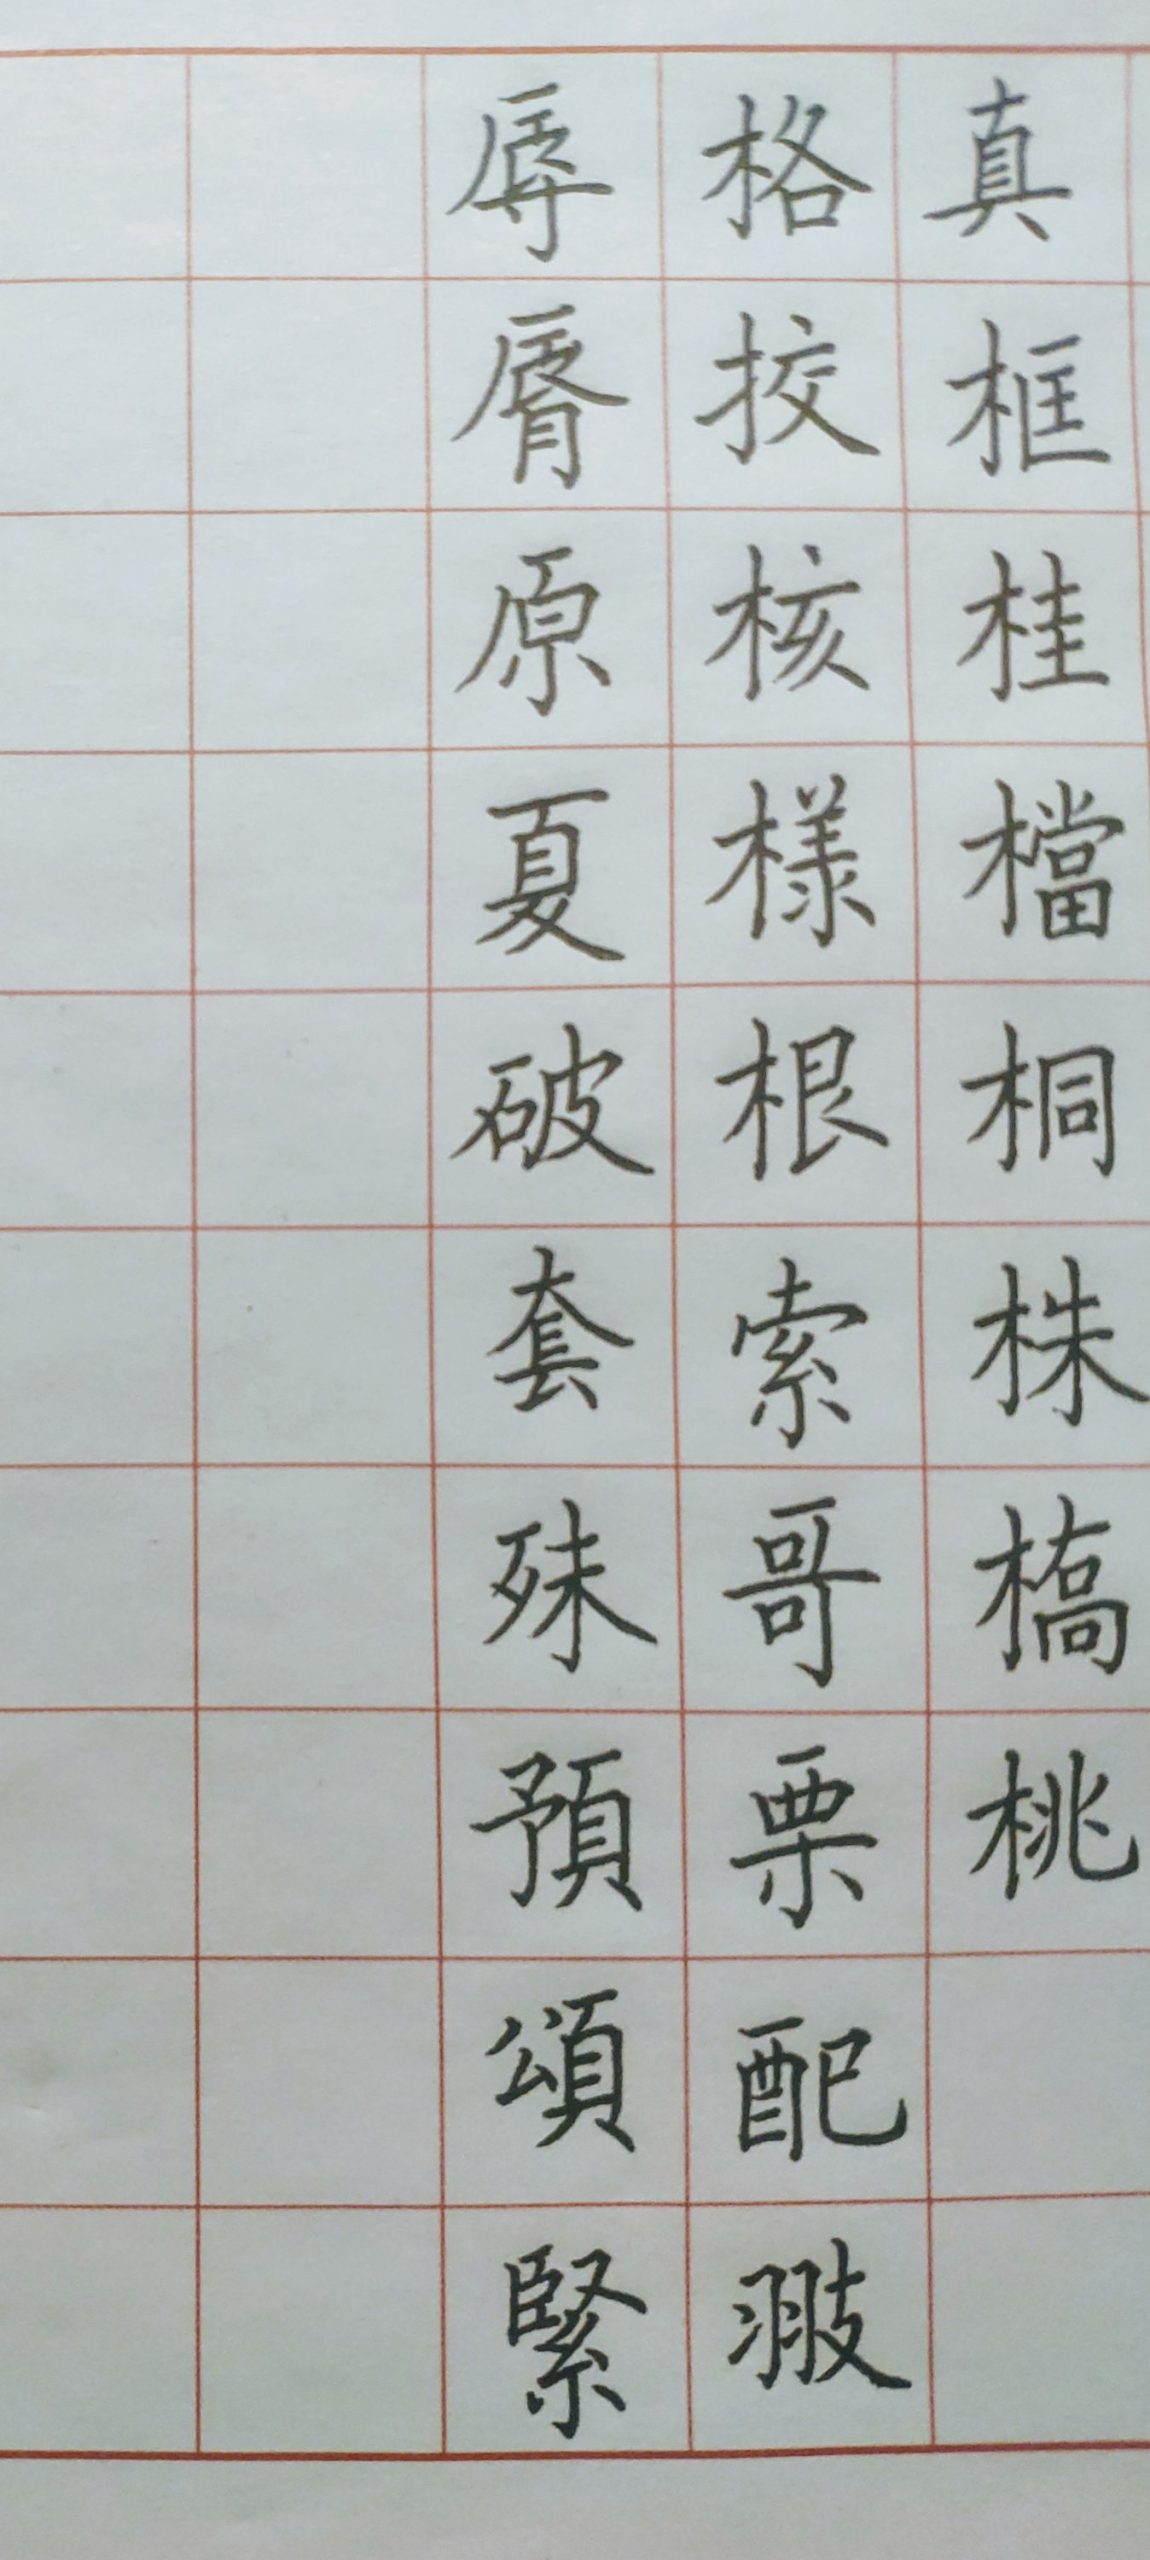 真框桂檔桐株橋桃
格挍核樣根索哥栗配翅
辱脣原夏破套殊預頌緊